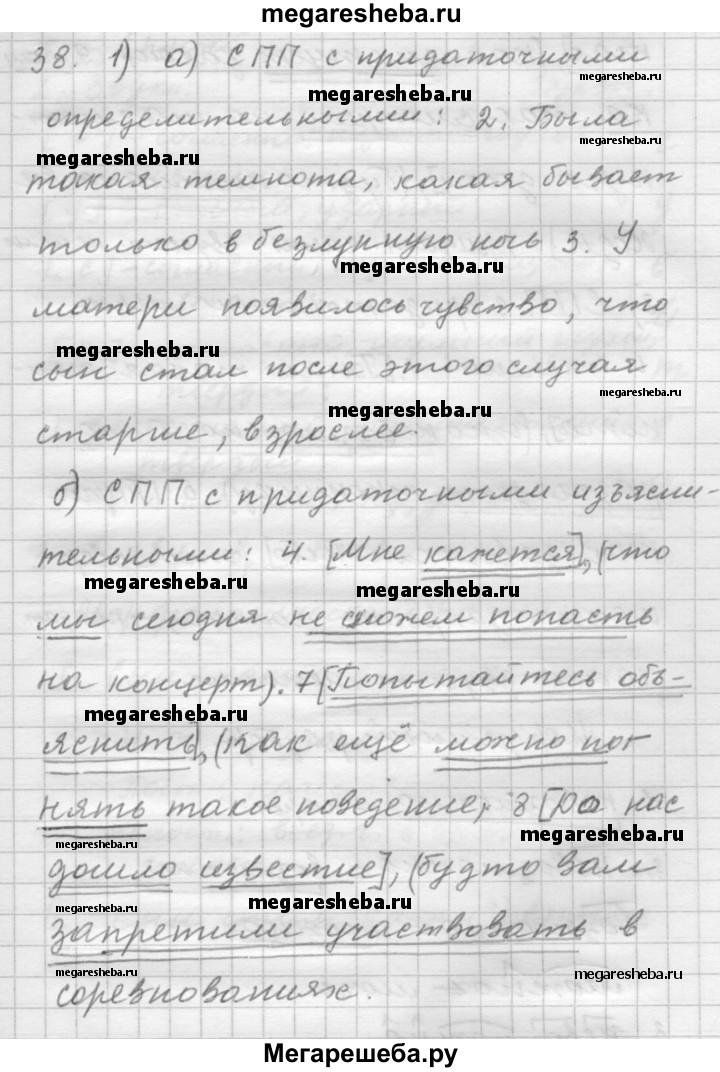 megaresheba.ru
38. 1) а) СПП с придаточными
megaresheba.ru
megaresheba.ru
определительными: 2. Была
megaresheba.ru
такая темнота, какая бывает
только в безлунную ночь 3. У
megaresheba.ru
матери появилось чувство, что
megaresheba.ru
сын стал после этого случая
megaresheba.ru
megaresheba.ru
старше, взрослее.
б) СПП с придаточными изъясни-
тельными: 4. [Мне кажется], (что
megaresheba.ru
megaresheba.ru
мы сегодня не сможем попасть
на концерт). 7 [Попытайтесь объ-
megaresheba.ru
яснить], (как ещё можно пог
нять такое поведение, 8 [До нас
megaresheba.ru
megaresheba.ru
дошло известие], (будто вам
megaresheba.ru
megaresheba.ru
запретили участвовать в
megaresheba.ru
megaresheba.ru
соревнованиях.
megaresheba.ru
Мегарешеба.ру